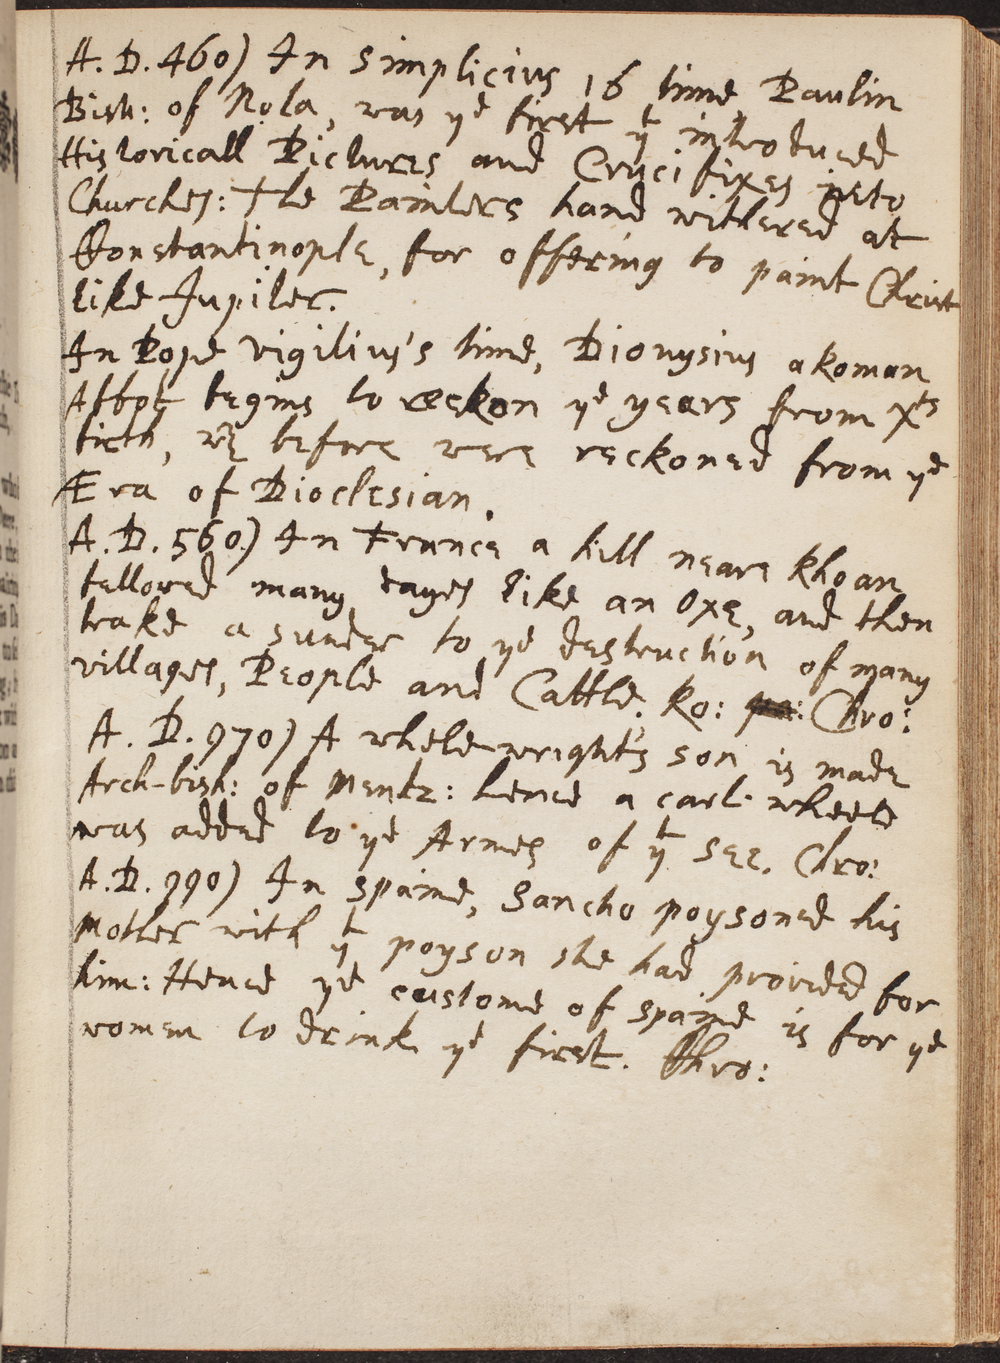 A. D. 460) In Simplicius 16 time Paulin
Bish: of Nola, was ye first yt introduced
Historicall Pictures and Crucifixes into
Churches: The Painters hand withered at
Constantinople, for offering to paint Christ
like Jupiter.
In Pope Vigilius's time, Dionysius a Roman
Abbot begins to reckon ye years from Xts
birth, wch before were reckoned from ye
Æra of Dioclesian.
A. D. 560.) In France a hill neare Rhoan
bellowed many dayes like an Oxe, and then
brake a sunder to ye destruction of many
villages, People and Cattle. Ro: Chro:
A. D. 970) A whele-wright's son is made
Arch-bish: of Mentz: hence a cart wheele
was added to ye Armes of yt See. Chro:
A. D. 990) In Spaine, Sancho poysoned his
Mother with yt poyson she had provided for
him: Hence ye custome of Spaine is for ye
women to drink ye first. Chro: